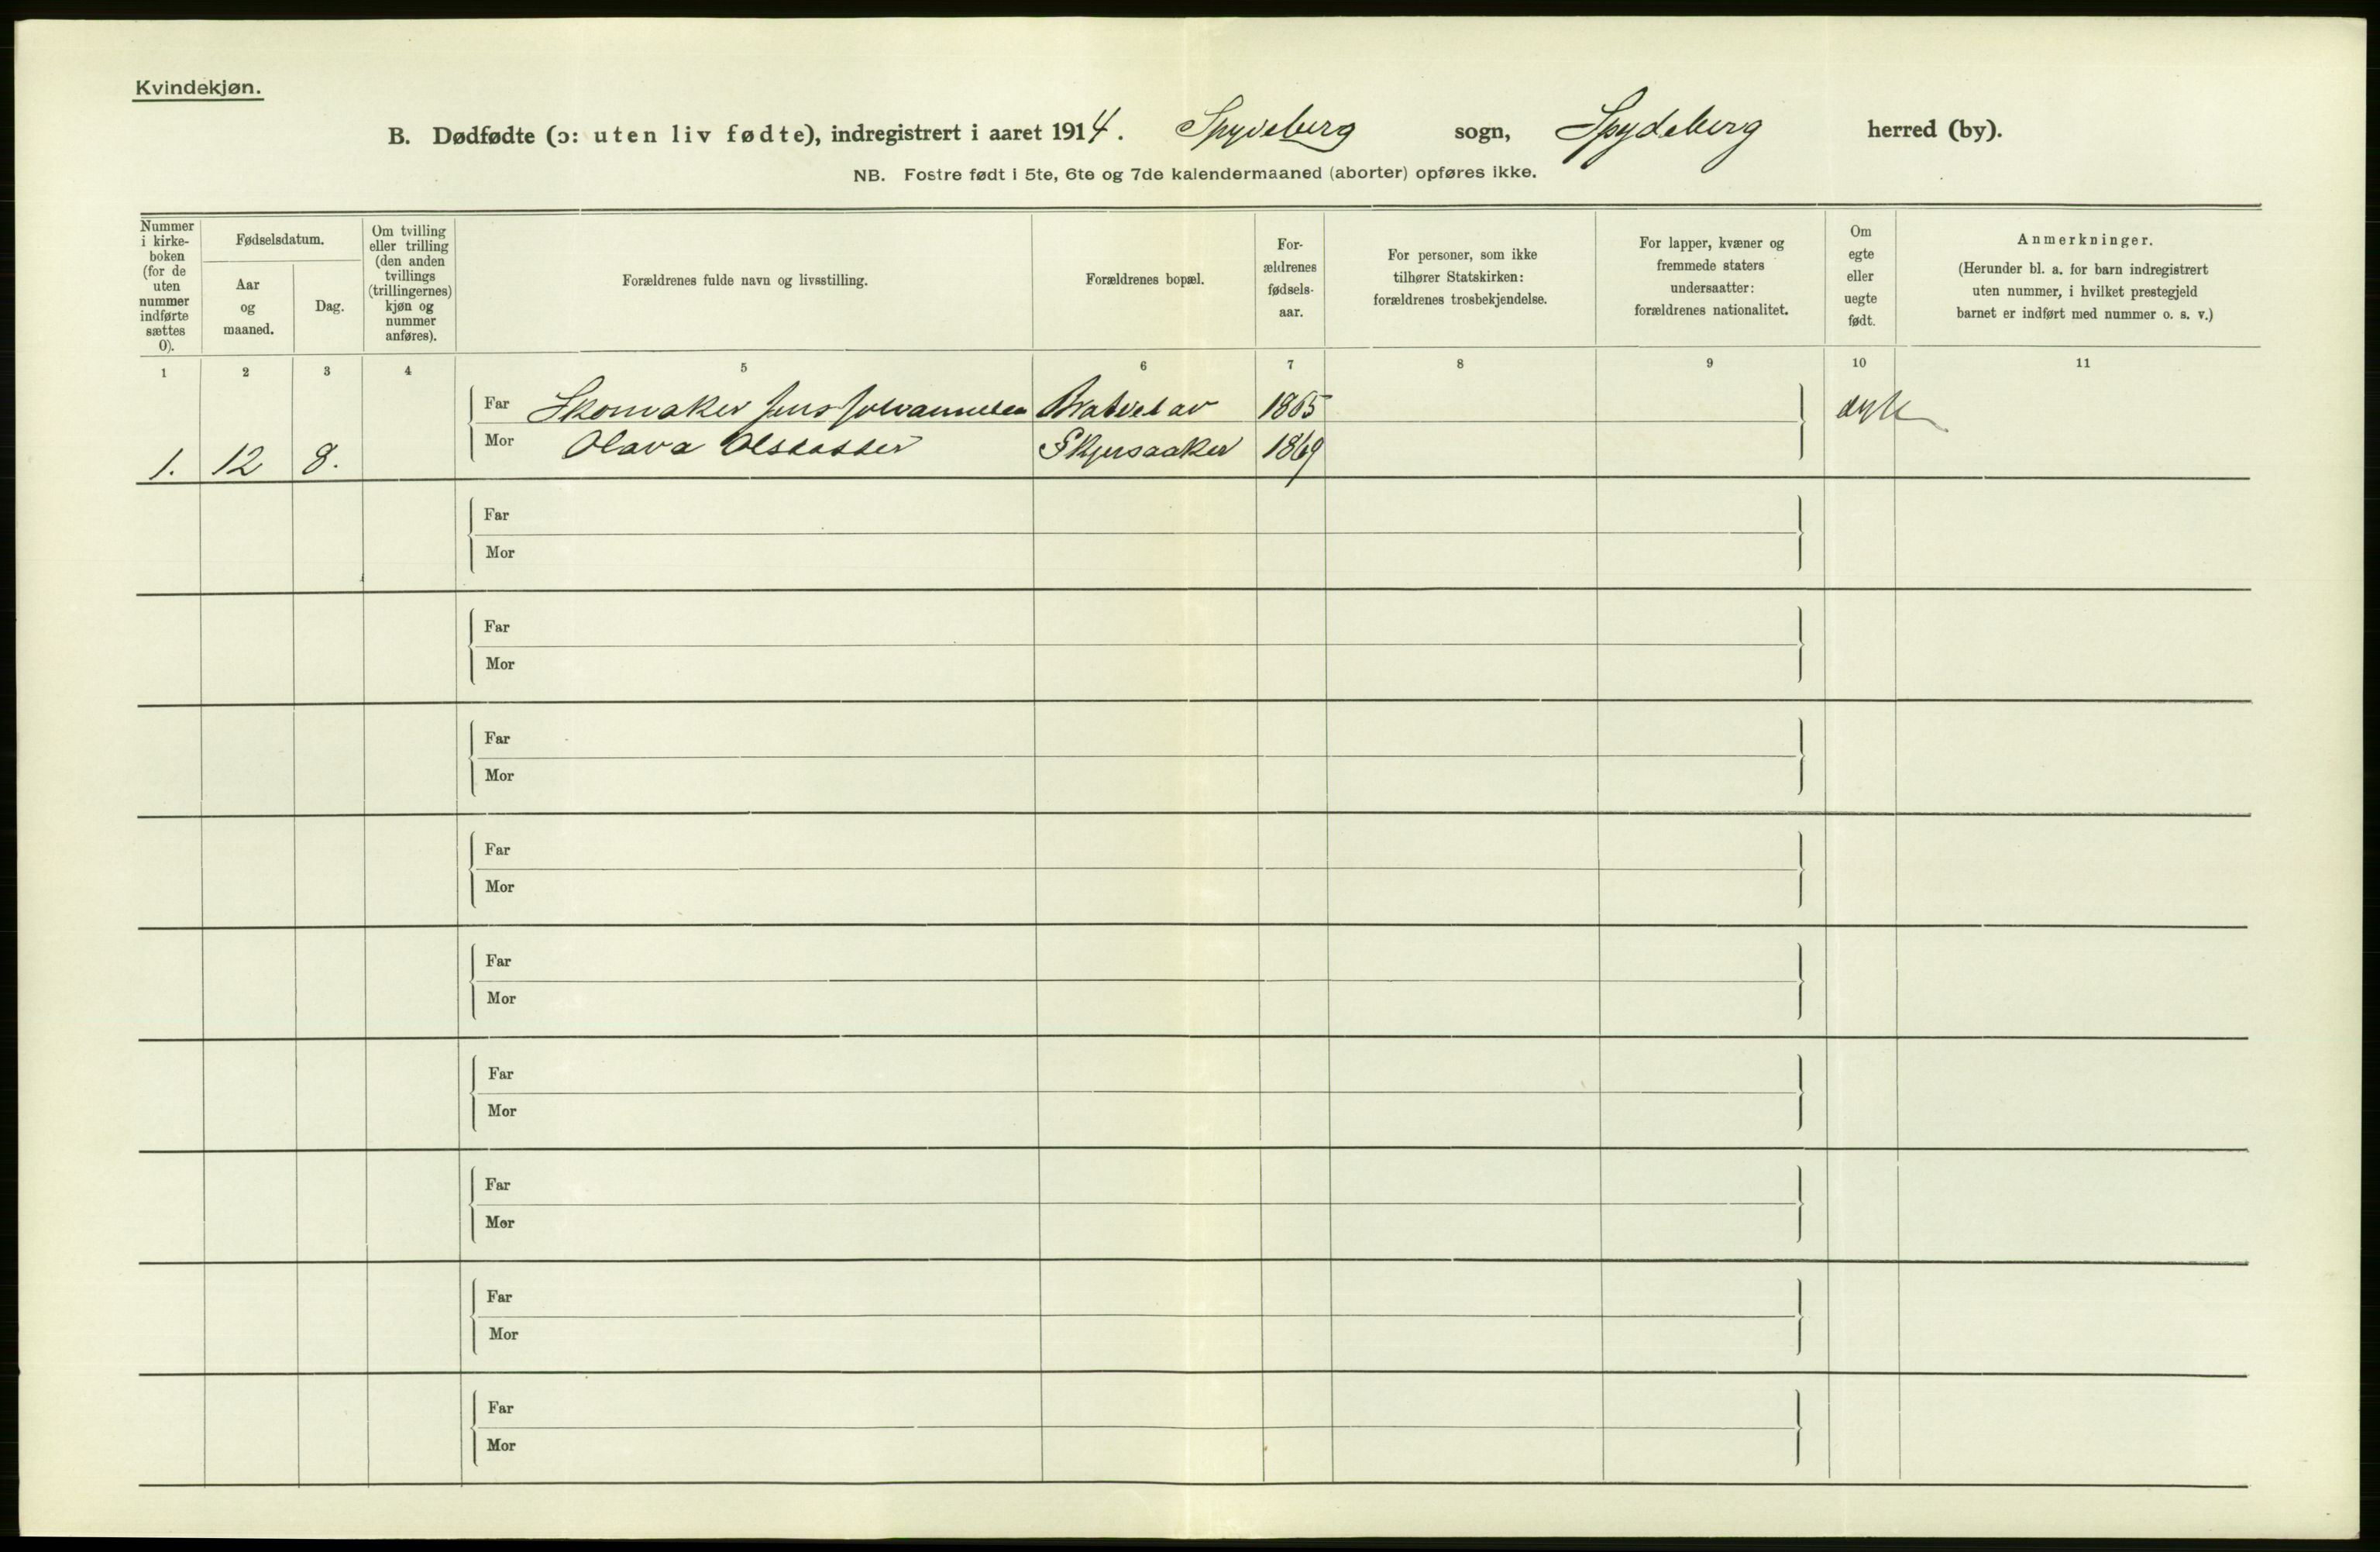 Kvindekjøn.
B. Dødfødte (ɔ: uten liv fødte), indregistrert i aaret 1914. Spydeberg sogn, Spydeberg herred (by).
NB. Fostre født i 5te, 6te og 7de kalendermaaned (aborter) opføres ikke.
Nummer
i kirke-
boken
(for de
uten
nummer
indførte
sættes
0).
Fødselsdatum.
Aar
og
maaned.
Dag.
Om tvilling
eller trilling
(den anden
tvillings
(trillingernes)
kjøn og
nummer
anføres).
Forældrenes fulde navn og livsstilling.
Forældrenes bopæl.
For-
ældrenes
fødsels-
aar.
For personer, som ikke
tilhører Statskirken:
forældrenes trosbekjendelse.
For lapper, kvæner og
fremmede staters
undersaatter:
forældrenes nationalitet.
Om
egte
eller
uegte
født.
Anmerkninger.
(Herunder bl. a. for barn indregistrert
uten nummer, i hvilket prestegjeld
barnet er indført med nummer o. s. v.)
1 2 3 4 5 6 7 8 9 10 11
Far Skomaker Jens Johannesen av 1865
Mor Olava Olsdatter Skjersaaker 1869
1. 12 8.
Far
Mor
Far
Mor
Far
Mor
Far
Mor
Far
Mor
Far
Mor
Far
Mor
Far
Mor
Far
Mor